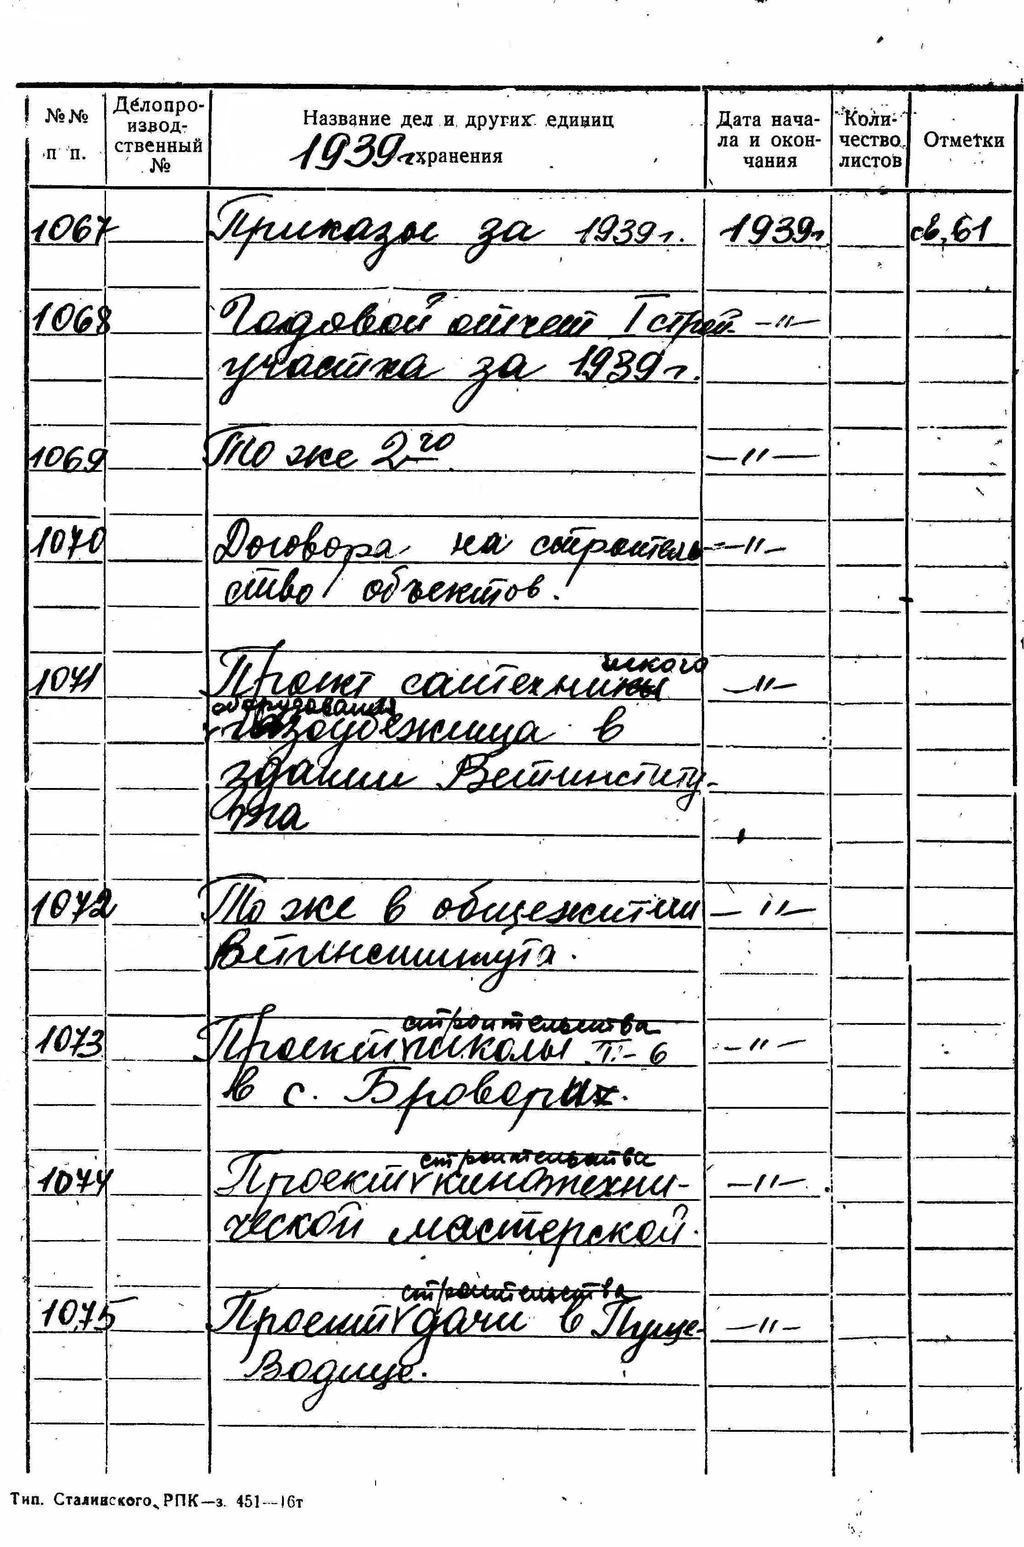 №№ п п.
Делопроизводственный №
Название дел и других единиц хранения
1939 г
Дата начала и окончания
Количество листов
Отметки
1067 Приказы за 1939 г. 1939 г св. 61
1068 Годовой отчет I строй- —"—
участка за 1939 г.
1069 То же 2го —"—
1070 Договора на строитель- —"—
ство объектов.
1071 Проект сантехнического —"—
оборудования
газоубежища в
здании Ветинститу-
та
1072 То же в общежитии —"—
Ветинститута.
строительства
1073 Проект школы Т-6 —"—
в с. Броварах.
строительства
1074 Проект кинотехни- —"—
ческой мастерской.
строительства
1075 Проект дачи в Пуще- —"—
Водице.
Тип. Сталинского, РПК—з. 451—16т